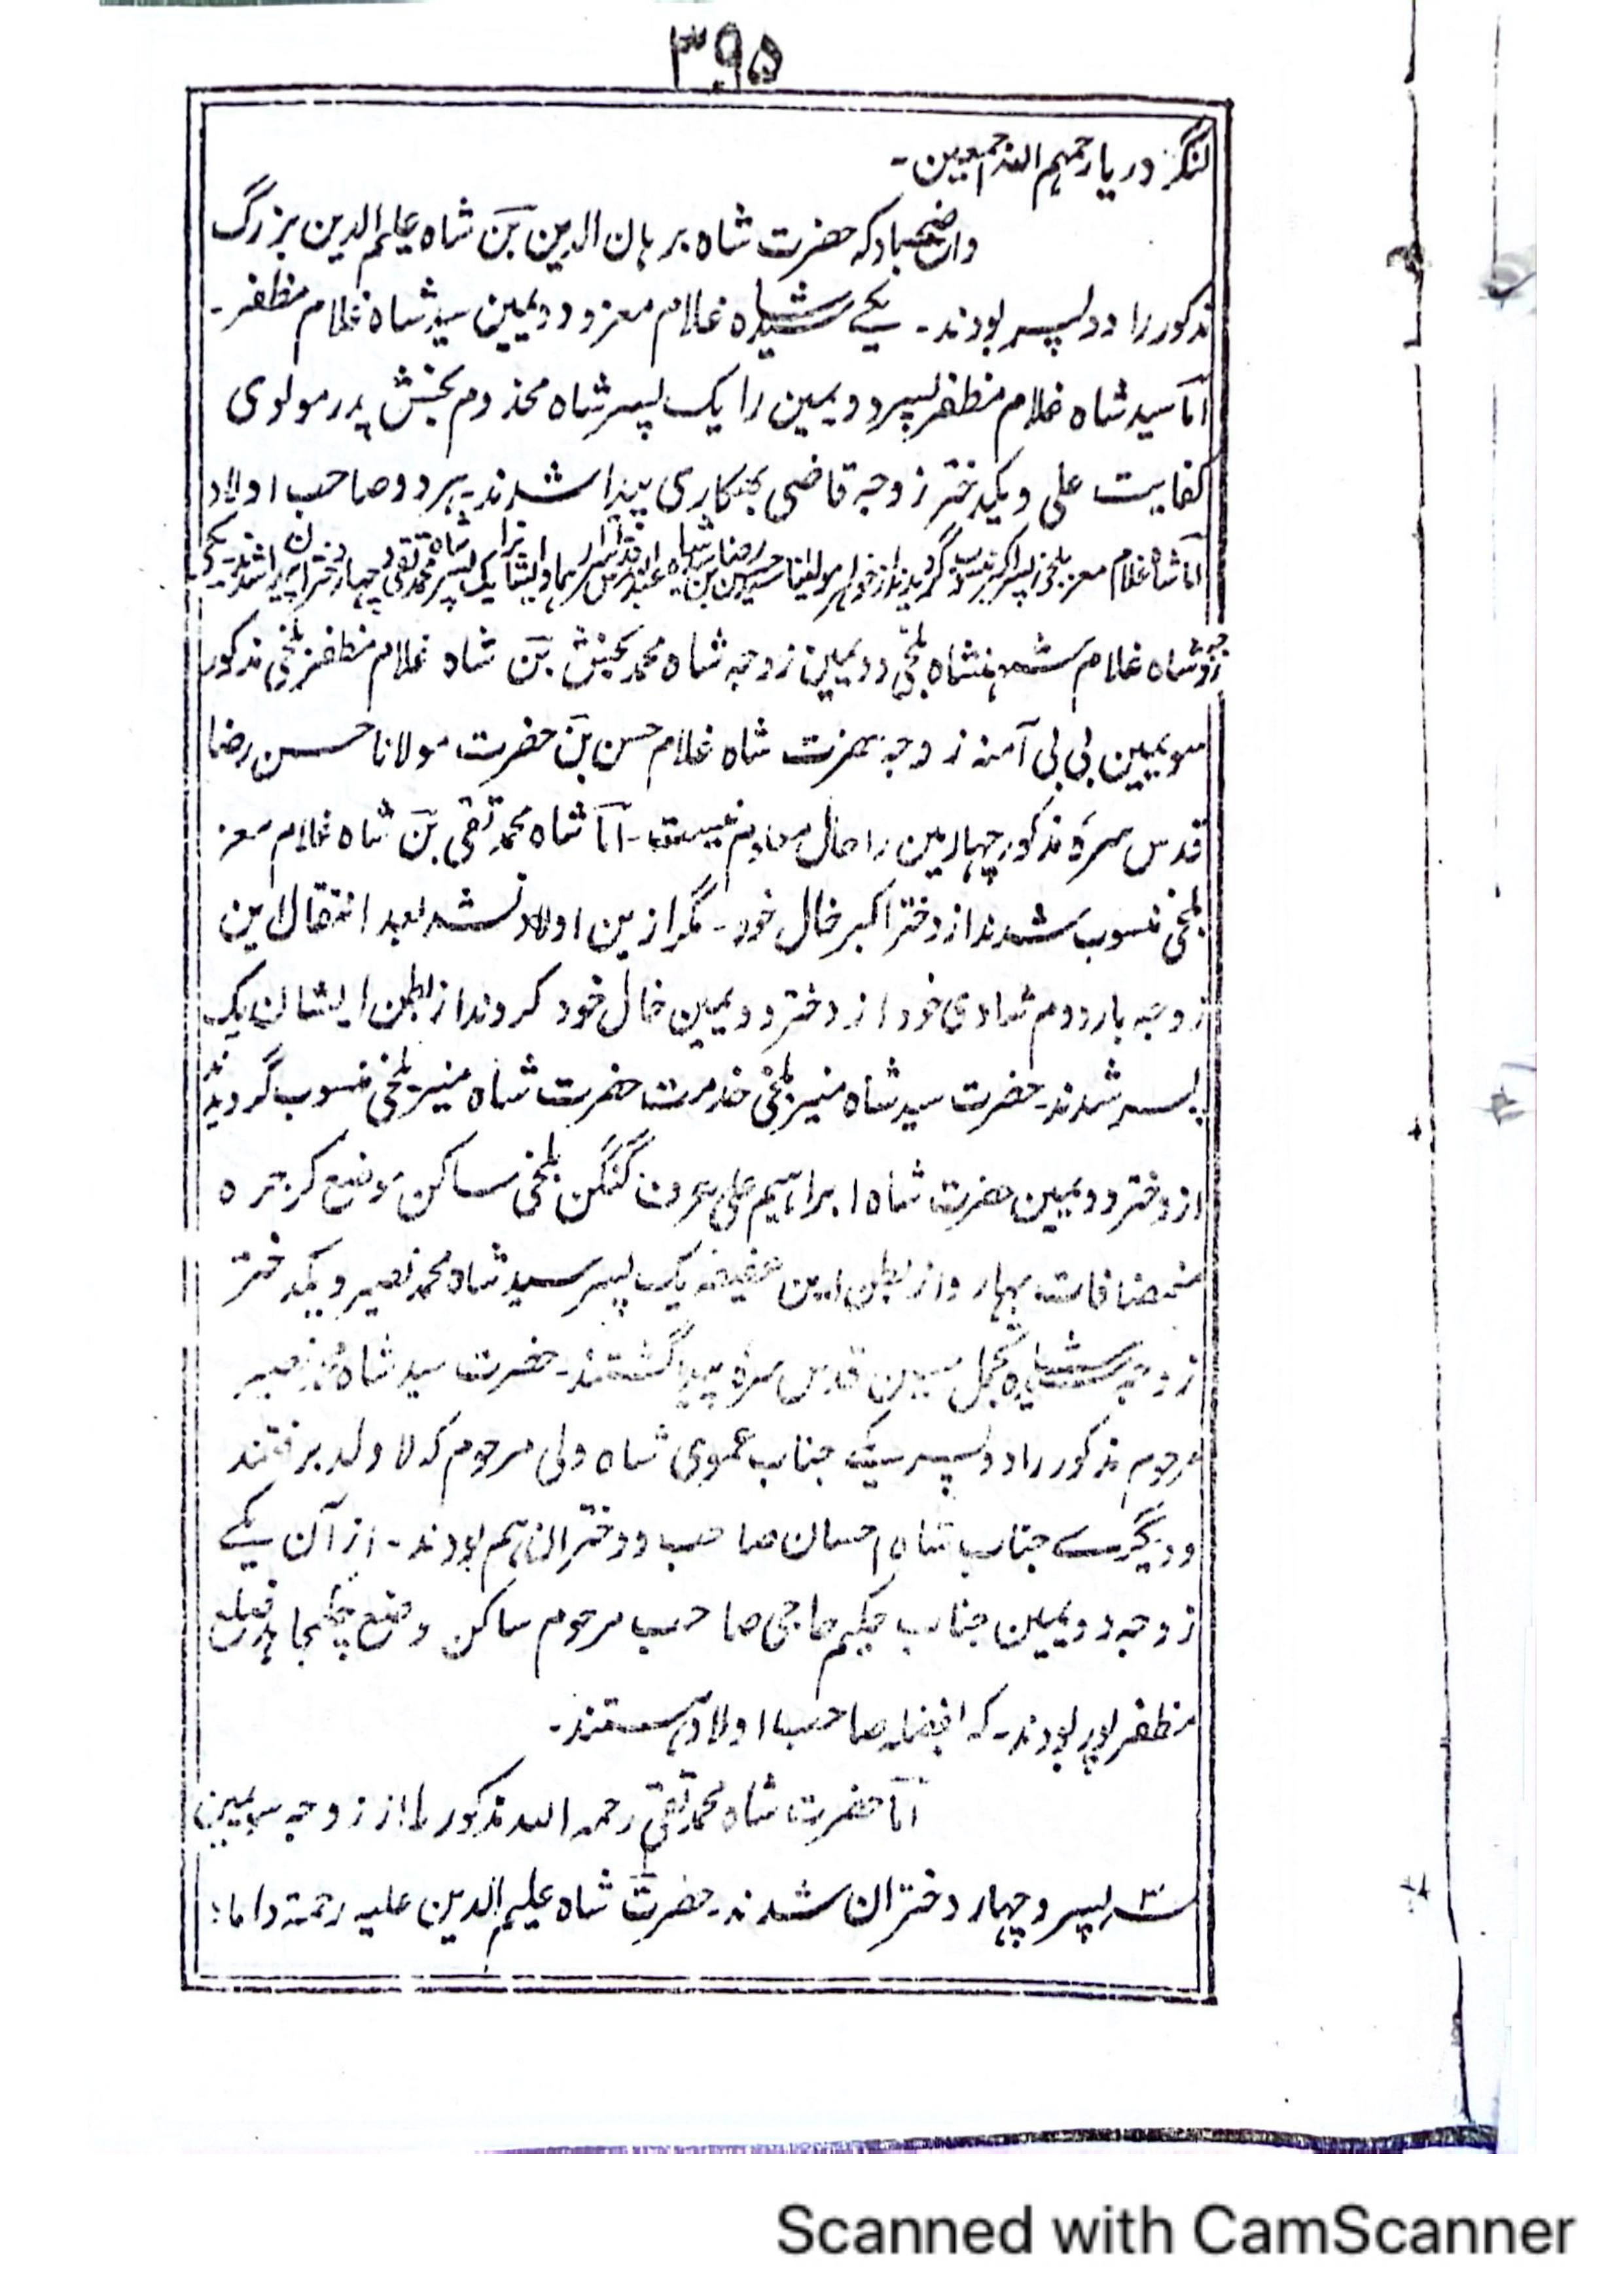 ۳۹۵
لنگر دریا رحمہم اللہ اجمعین۔
واضحباد کہ حضرت شاہ برہان الدین بن شاہ علیم الدین بزرگ
مذکور را دو پسر بودند۔ یکے سید شاہ غلام معز و دویمین سید شاہ غلام مظفر۔
اما سید شاہ غلام مظفر پسر دویمین را یک پسر شاہ مخدوم بخش پدر مولوی
کفایت علی و یکدختر زوجہ قاضی بھکاری پیدا شدند ہر دو صاحب اولاد
اما شاہ غلام معز بلخی پسر اکبر منسوب گردیدند از خواہر مولینا سید حسن رضا بن شاہ و ایشانرا یک پسر شاہ محمد تقی و چہار دختران پیدا شدند۔ یکے
زوجہ شاہ غلام شہنشاہ بلخی دویمین زوجہ شاہ محمد بخش بن شاہ غلام مظفر بلخی مذکور
سویمین بی بی آمنہ زوجہ حضرت شاہ غلام حسن بن حضرت مولانا حسن رضا
قدس سرہ مذکور چہارمین را حال معلوم نیست۔ اما شاہ محمد تقی بن شاہ غلام معز
بلخی منسوب شدند از دختر اکبر خال خود۔ مگر ازین اولاد نشد بعد انتقال این
زوجہ بار دوم شادی خود از دختر دویمین خال خود کردند از بطن ایشان یک
پسر شدند۔ حضرت سید شاہ منیر بلخی خدمت حضرت شاہ منیر بلخی منسوب گردیدند
از دختر دویمین حضرت شاہ ابراہیم علی عرف گنگن بلخی ساکن موضع
منمضافات بہار و از بطن این عفیفہ یک پسر سید شاہ محمد نصیر و یکدختر
زوجہ سید شاہ تجمل حسین قدس سرہ پیدا گشتند۔ حضرت سید شاہ محمد نصیر
مرحوم مذکور را دو پسر یکے جناب عموی شاہ ولی مرحوم کہ لا ولد برفتند
و دیگرے جناب شاہ احسان صاحب و دختران ہم بودند۔ از آن یکے
زوجہ دویمین جناب حکیم حاجی صاحب مرحوم ساکن وضع ضلع
مظفرپور بودند۔ کہ صاحب اولاد ہستند۔
اما حضرت شاہ محمد تقی رحمہ اللہ مذکور را از زوجہ سویمین
سہ پسر و چہار دختران شدند۔ حضرت شاہ علیم الدین علیہ رحمۃ داما؛
Scanned with CamScanner